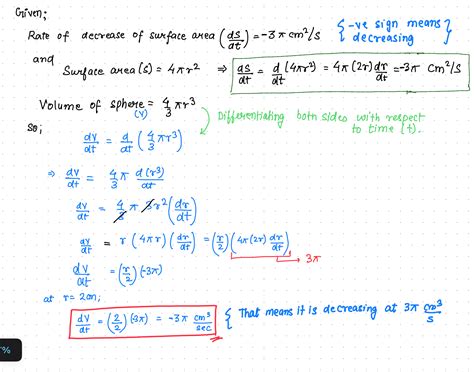 Given;
Rate of decrease of surface area (ds/dt) = -3π cm²/s { -ve sign means decreasing
and
Surface area (s) = 4πr² ⇒ ds/dt = d/dt (4πr²) = 4π(2r) dr/dt = -3π cm²/s
Volume of sphere = 4/3 πr³
(V)
Differentiating both sides with respect to time (t).
So;
dv/dt = d/dt (4/3 πr³)
⇒ dv/dt = 4/3 π d(r³)/dt
dv/dt = 4/3 π 3r² (dr/dt)
dv/dt = r (4πr) (dr/dt) = (r/2) (4π(2r) dr/dt)
→ 3π
dv/dt = (r/2) (-3π)
at r = 2cm;
dv/dt = (2/2) (-3π) = -3π cm³/sec { That means it is decreasing at 3π cm³/s
%